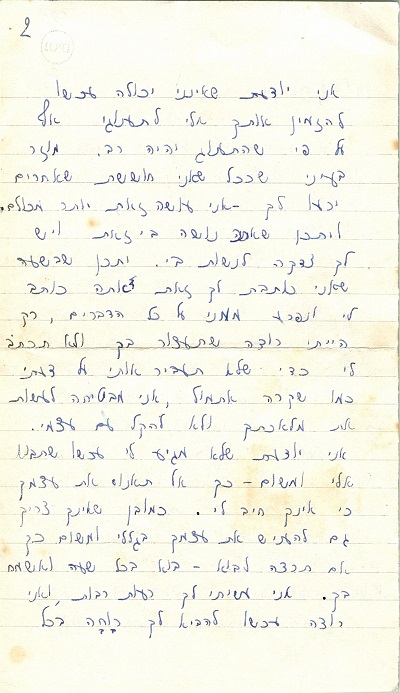 2
אני יודעת שאינני יכולה עכשו
להזמין אותך אלי לתענוגי אף
על פי שהתענוג יהיה רב. מוזר
בעיני שככל שאני חוששת שאחרים
ירעו לך - אני עושה זאת יותר מכולם.
ויתכן שאתה בי זאת ויש
לך צדקה לנשות בי. יתכן שבשעה
שאני כותבת לך זאת אתה כותב
לי ונפרע ממני על כל הדברים, רק
הייתי רוצה שתעצור בך ולא תכתב
לי כדי שלא תעביר אותי על דעתי
כמו שקרה אתמול, אני מבטיחה לעשות
את מלאכתך ולא להקל עם עצמי.
אני יודעת שלא מגיע לי עכשו שתבוא
אלי ומשום - כך אל תאנוס את עצמך
כי אינך חיב לי. כמובן שאינך צריך
גם להעניש את עצמך בגללי ומשום כך
אם תרצה לבוא - בוא בכל שעה ואשמח
בך. אני עשיתי לך רעות רבות, ואני
רוצה עכשו להביא לך רוחה בכל